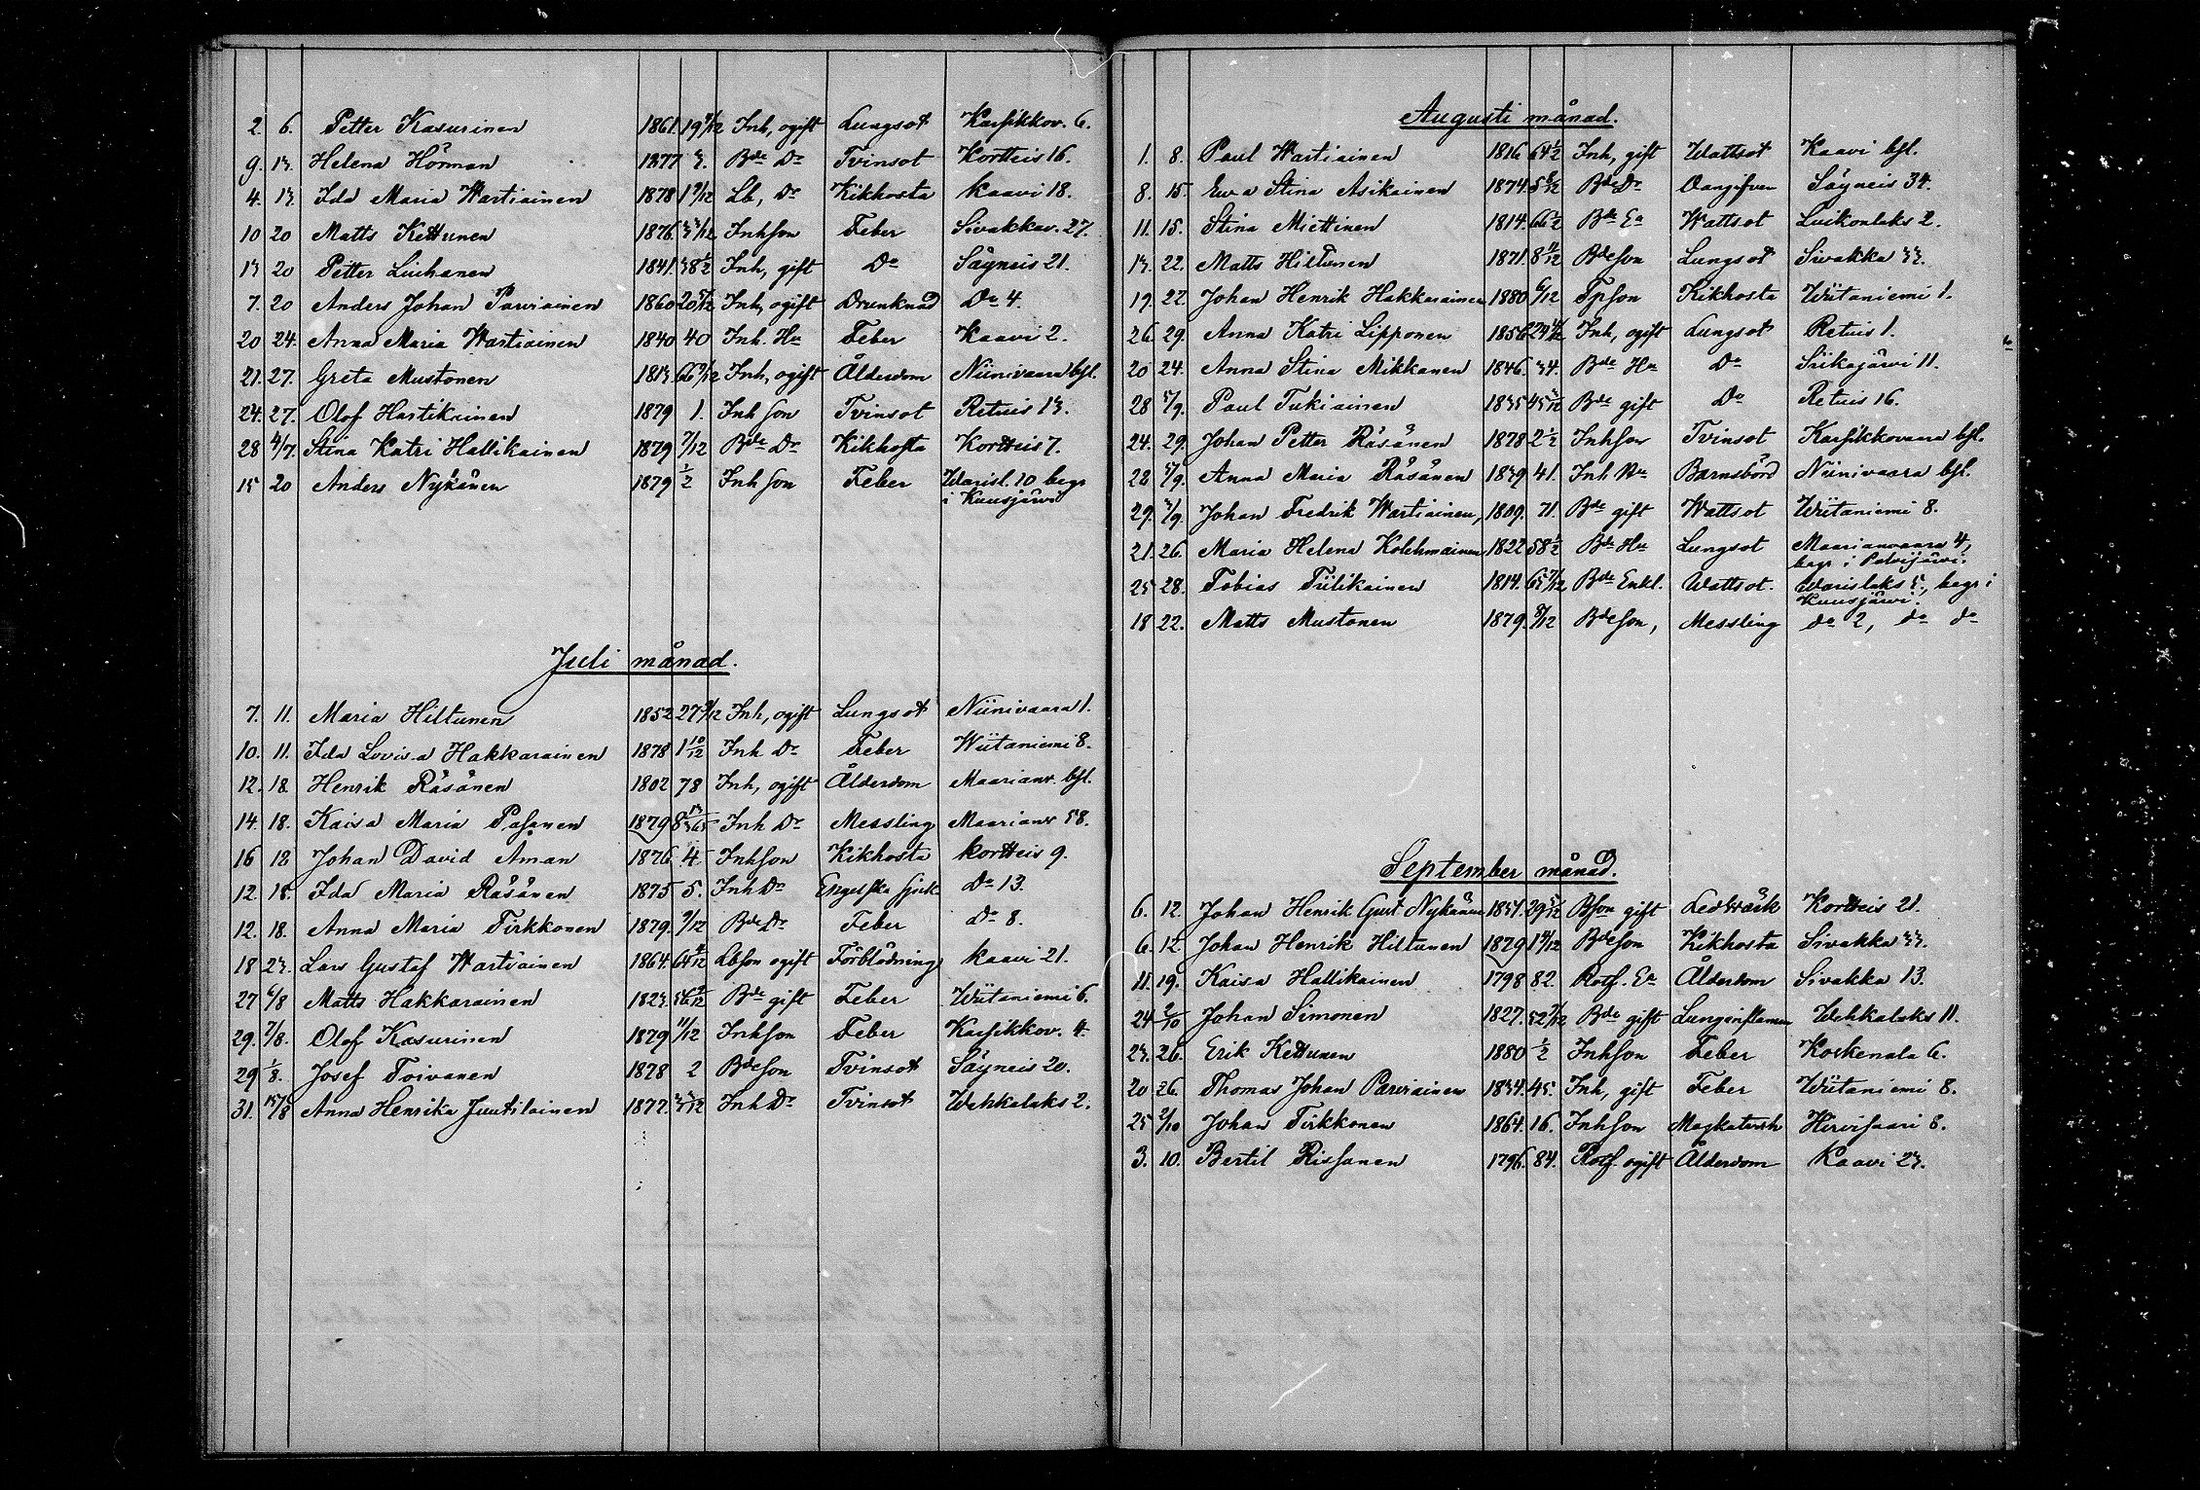 2. 6. Petter Kasurinen 1861. 19 9/12 Inh, ogift Lungsot Karsikkov. 6.
9. 13. Helena Hörman 1877 3. Bde Dr Tvinsot Kortteis 16.
4. 13. Ida Maria Wartiainen 1878 1 9/12 Lb, Dr Kikhosta Kaavi 18.
10 20 Matts Kettunen 1876 3 3/12 Inhson Feber Sivakkav. 27.
13 20 Petter Liuhanen 1841. 38 1/2 Inh, gift Do Säyneis 21.
7. 20 Anders Johan Parviainen 1860 20 5/12 Inh, ogift Drunknad Do 4.
20 24. Anna Maria Wartiainen 1840 40 Inh. Hu Feber Kaavi 2.
21. 27. Greta Mustonen 1813. 66 9/12 Inh, ogift Ålderdom Niinivaara bfl.
24. 27. Olof Hartikainen 1879 1. Inh son Tvinsot Retuis 13.
28 4/7. Stina Katri Hallikainen 1879 7/12 Bde Dr Kikhosta Kortteis 7.
15 20 Anders Nykänen 1879 1/2 Inh son Feber Warisl. 10 begr
i Kuusjärvi
Juli månad.
7. 11. Maria Hiltunen 1852 27 9/12 Inh, ogift Lungsot Niinivaara 1.
10. 11. Ida Lovisa Hakkarainen 1878 1 10/12 Inh Dr Feber Wiitaniemi 8.
12. 18 Henrik Räsänen 1802 78 Inh, ogift Ålderdom Maarianv. bfl.
14. 18. Kaisa Maria Pasanen 1879 Inh Dr Messling Maarianv 58.
16 18 Johan David Åman 1876 4 Inhson Kikhosta Kortteis 9.
12. 18. Ida Maria Räsänen 1875 5. Inh Dr Engelska sjuk Do 13.
12. 18. Anna Maria Tirkkonen 1879. 9/12 Bde Dr Feber Do 8.
18 23. Lars Gustaf Wartiainen 1864. Lbson ogift Förblödning Kaavi 21.
27 6/8 Matts Hakkarainen 1823. 56 9/12 Bde gift Feber Wiitaniemi 6.
29. 7/8. Olof Kasurinen 1879 11/12 Inhson Feber Karsikkov. 4.
29 1/8. Josef Toivanen 1878 2 Bdeson Tvinsot Säyneis 20.
31. 15/8 Anna Henrika Juutilainen 1877. 3 3/12 Inh Dr Tvinsot Wehkalaks 2.
Augusti månad.
1. 8. Paul Wartiainen 1816 64 1/2 Inh, gift Wattsot Kaavi bfl.
8. 15. Ewa Stina Asikainen 1874. 5 8/12 Bde Dr Oangifven Säyneis 34.
11. 15. Stina Miettinen 1814. 66 1/2 Bde Ea Wattsot Luikonlaks 2.
13. 22. Matts Hiltunen 1871. 8 11/12 Bdeson Lungsot Sivakka 33.
19. 22. Johan Henrik Hakkarainen 1880 6/12 Tpson Kikhosta Wiitaniemi 1.
26. 29. Anna Katri Lipponen 1856 Inh, ogift Lungsot Retuis 1.
20 24. Anna Stina Mikkanen 1846. 34. Bde Hu Do Siikajärvi 11.
28 5/9. Paul Tukiainen 1835 45 5/12 Bde gift Do Retuis 16.
24. 29. Johan Petter Räsänen 1878 2 1/2 Inhson Tvinsot Karsikkovaara bfl.
28 5/9. Anna Maria Räsänen 1839 41. Inh Hu Barnsbörd Niinivaara bfl.
29. 5/9. Johan Fredrik Wartiainen, 1809. 71. Bde gift Wattsot Wiitaniemi 8.
21. 26. Maria Helena Kolehmainen 1822 58 1/2 Bde Hu Lungsot Maarianvaara 4,
begr i Polvijärvi.
25 28. Tobias Tiilikainen 1814. 65 7/12 Bde Enkl. Wattsot. Warislaks 5, begr i
Kuusjärvi.
18 22. Matts Mustonen 1879. 8/12 Bdeson, Messling do 2, do do
September månad.
6. 12. Johan Henrik Gust Nykänen 1851. 29 5/12 Bson gift Ledwärk Kortteis 21.
6. 12. Johan Henrik Hiltunen 1879 Bdeson Kikhosta Sivakka 33.
11. 19. Kaisa Hallikainen 1798 82. Rotf. Ea Ålderdom Sivakka 13.
24 2/10 Johan Simonen 1827. 52 7/12 Bde gift Lunginflamm Wehkalaks 11.
23. 26. Erik Kettunen 1880 1/2 Inhson Feber Koskenala 6.
20 26. Thomas Johan Parviainen 1834. 45. Inh, gift Feber Wiitaniemi 8.
25 2/10 Johan Tirkkonen 1864. 16. Inhson Magkatarrh Hirvisaari 8.
3. 10. Bertil Rissanen 1796. 84. Rotf. ogift Ålderdom Kaavi 23.